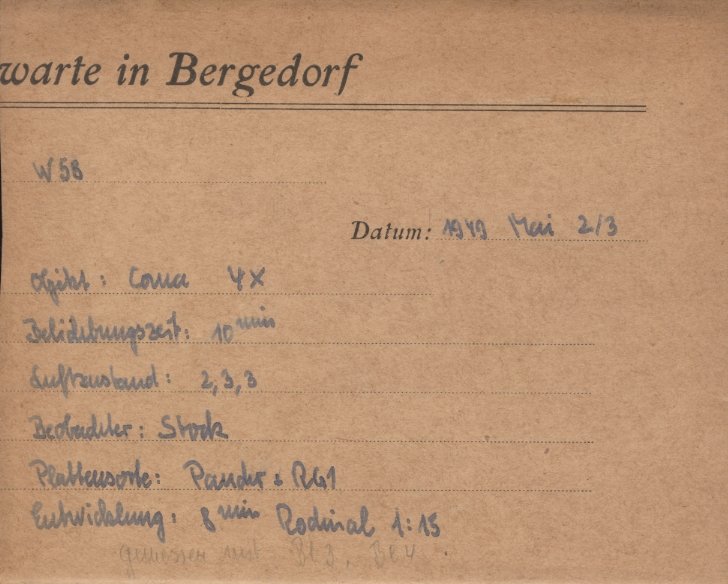 warte in Bergedorf
W 58
Datum: 1949 Mai 2/3
Objekt: Coma 4 X
Belichtungszeit: 10 min
Luftzustand: 2,3,3
Beobachter: Stock
Plattensorte: Panchr + RG1
Entwicklung: 8 min Rodinal 1:15
gemessen mit Bl 3, Bl 4